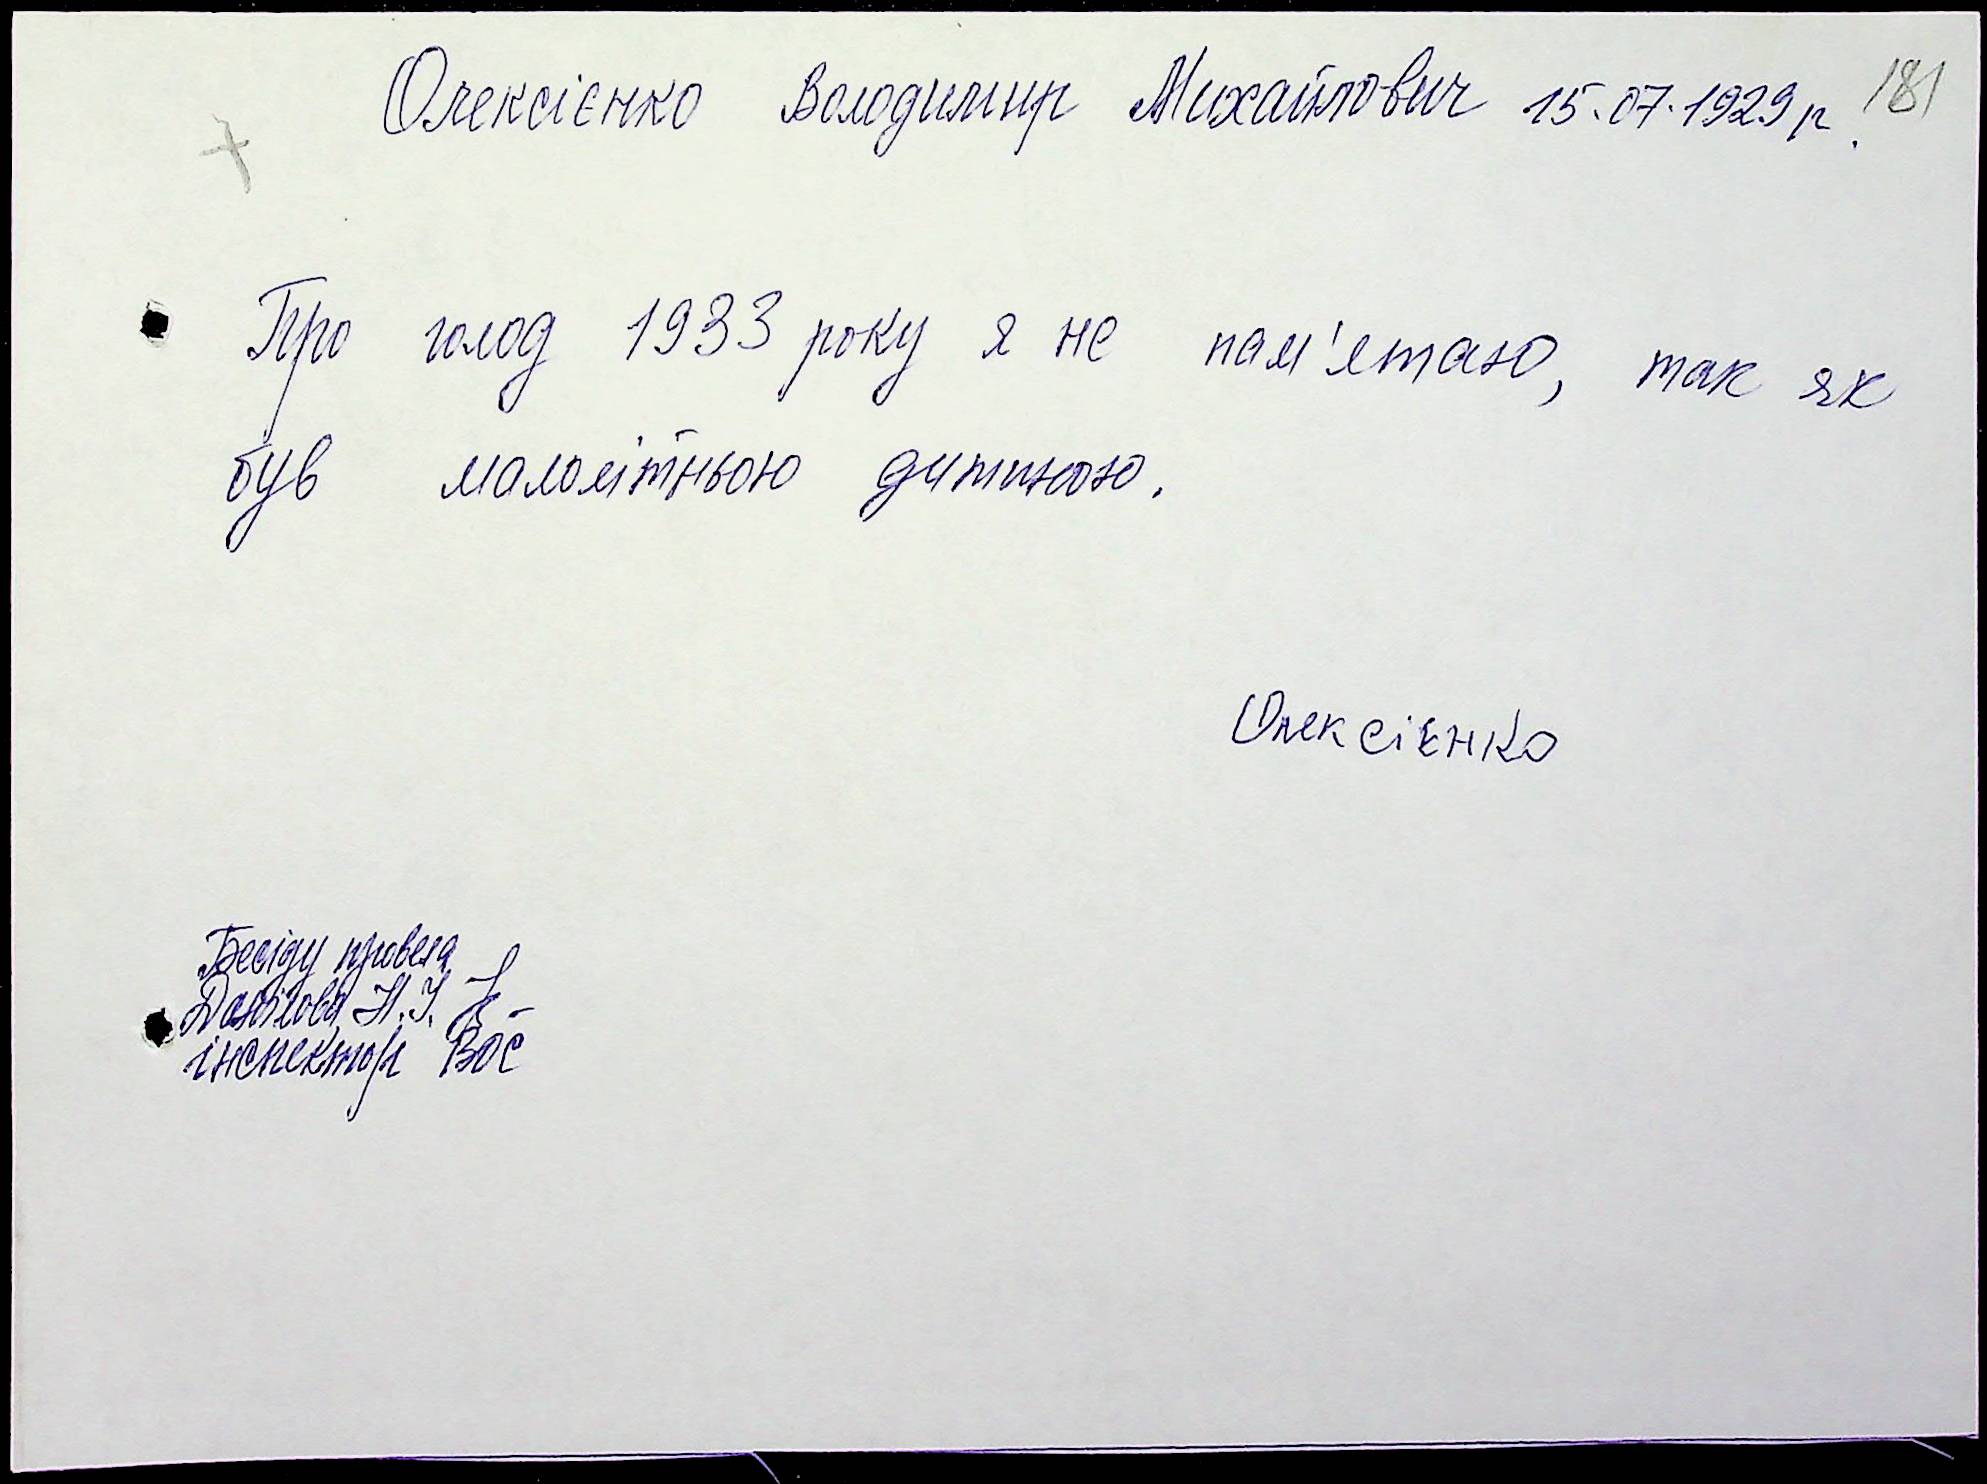 Олексієнко Володимир Михайлович 15.07.1929 р. 181
Про голод 1933 року я не пам'ятаю, так як
був малолітньою дитиною.
Олексієнко
Бесіду провела
Данілова Н.І.
інспектор ВОС